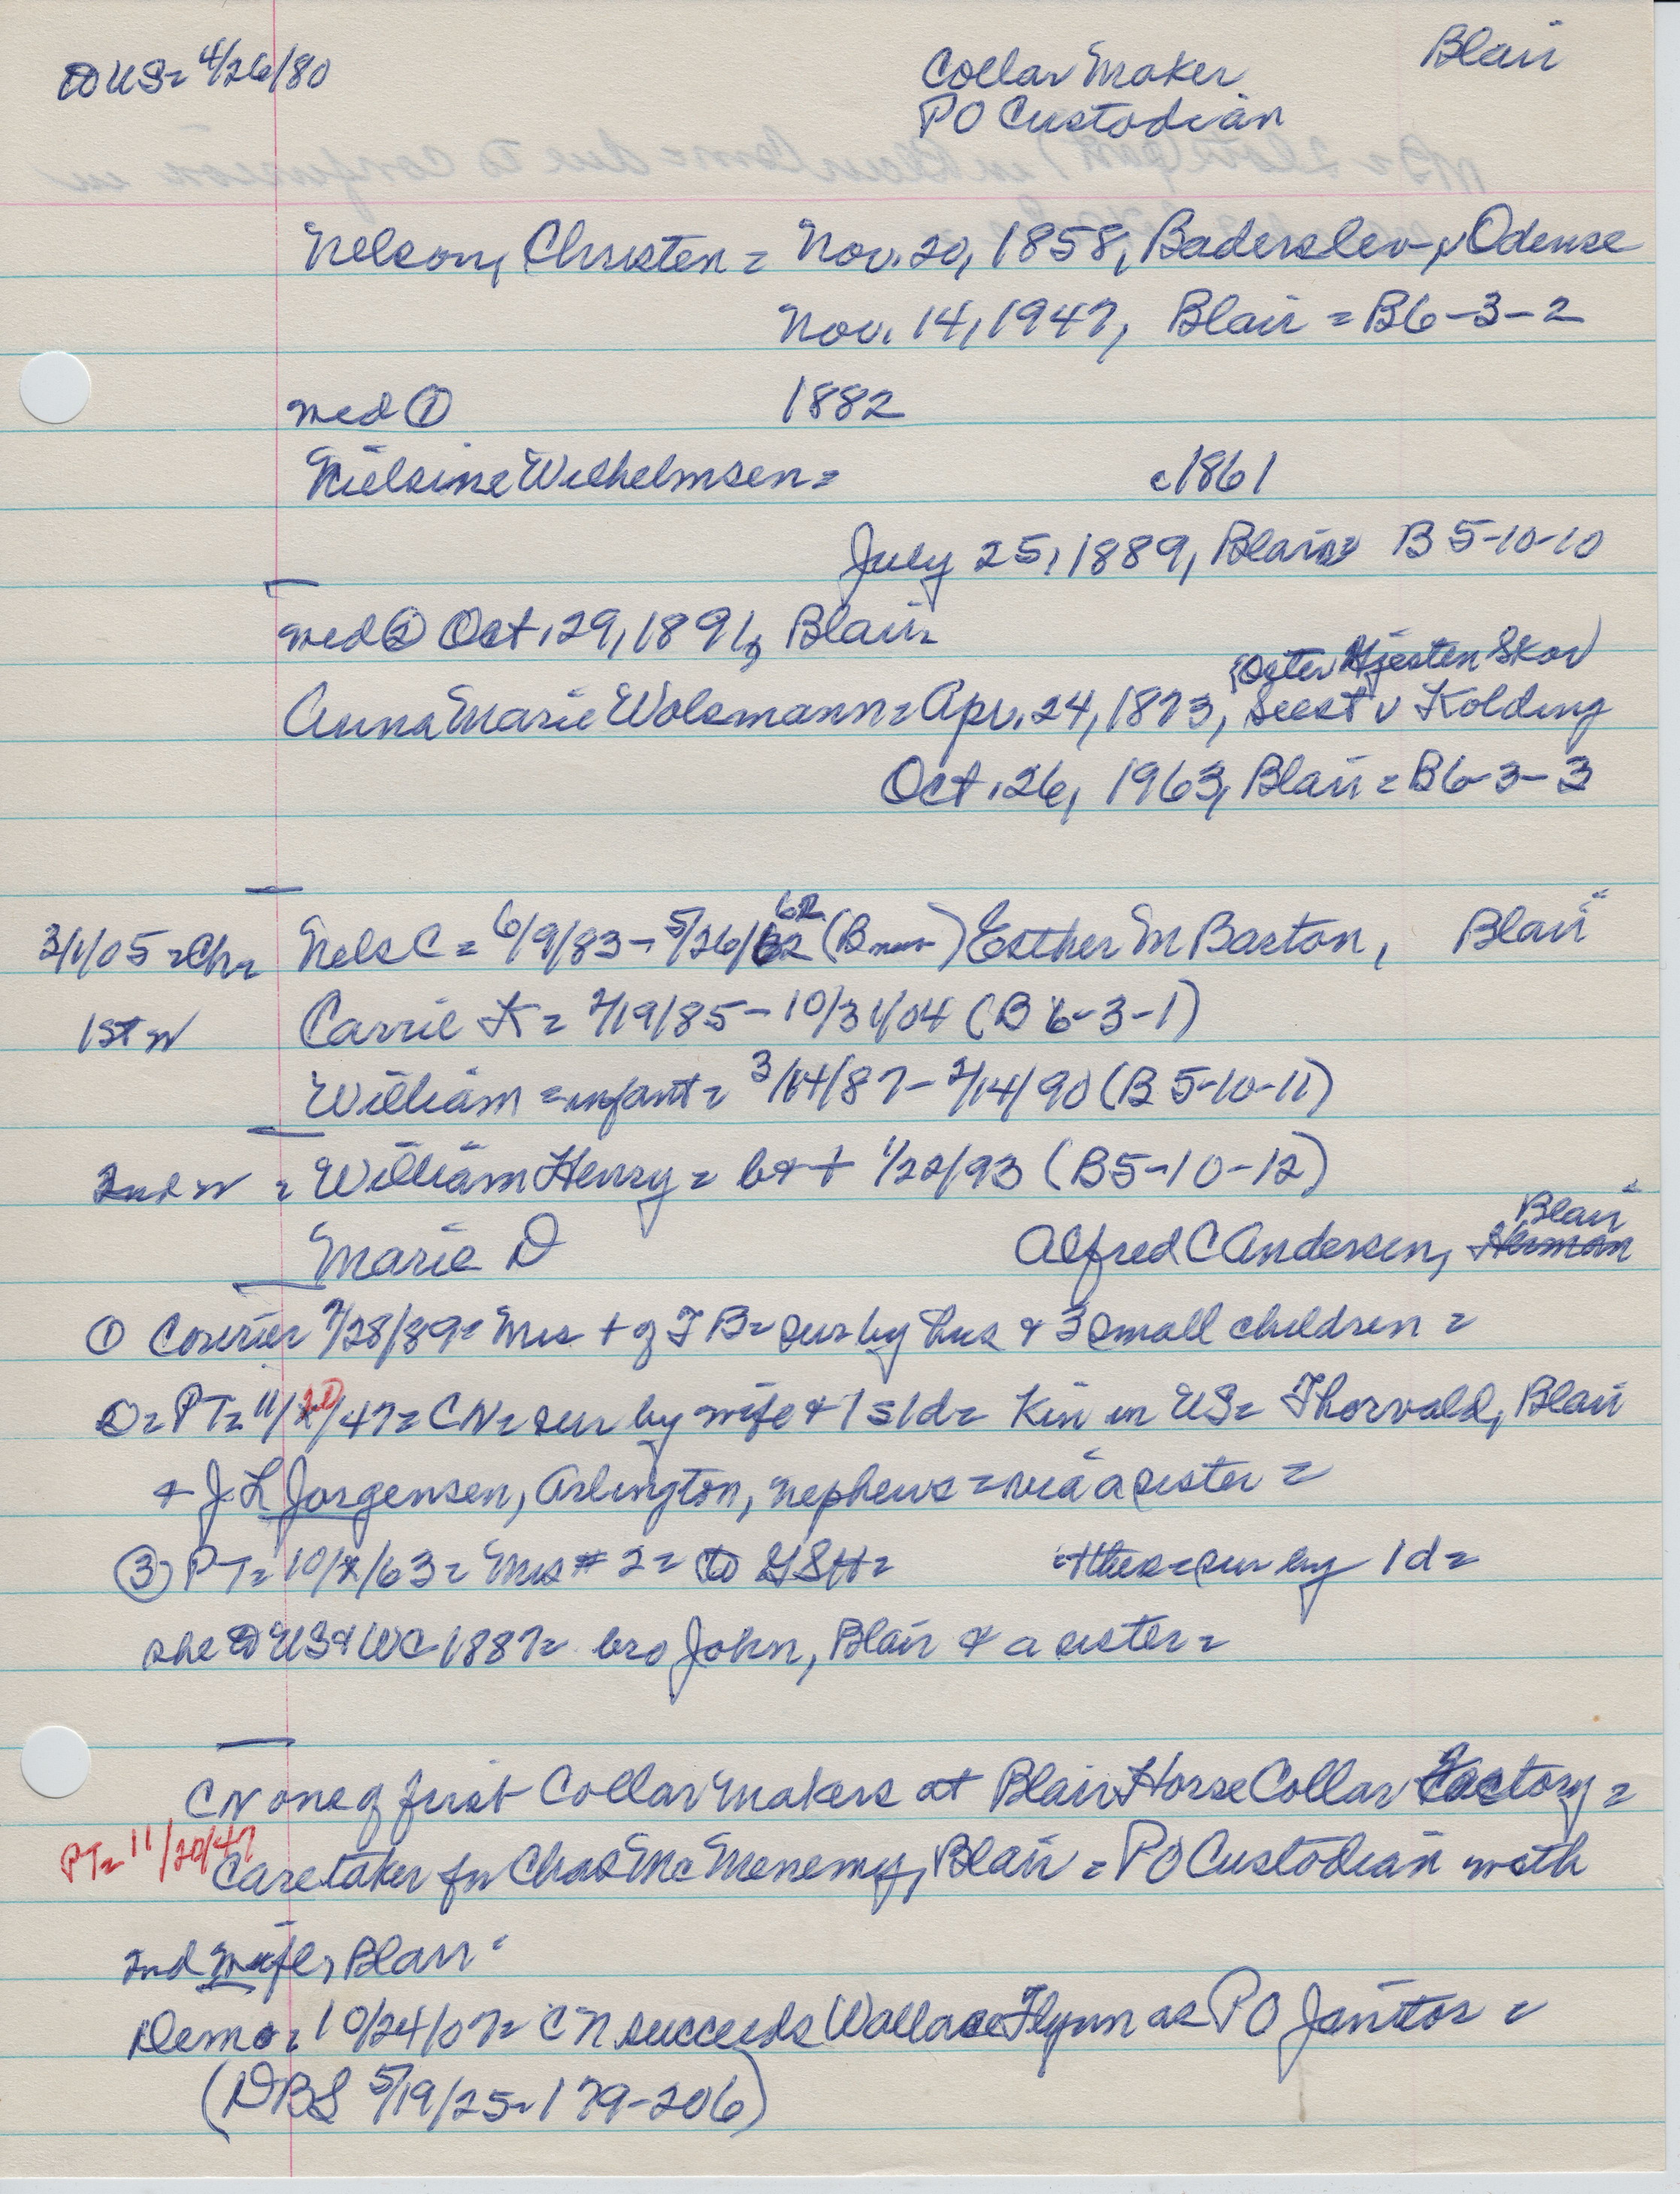 to US= 4/26/80
Collar Maker Blair
PO Custodian
Nelson, Christen = Nov. 20, 1858, Baderslev, v Odense
Nov. 14, 1947, Blair = B6-3-2
med ① 1882
Nielsine Wilhelmsen = c1861
July 25, 1889, Blair= B 5-10-10
med ② Oct. 29, 1891, Blair=
(Oster Hjesten Skov)
Anna Marie Wolsmann = Apr. 24, 1873, Seest v Kolding
Oct. 26, 1963, Blair = B6-3-3
3/1/05 = Ch= Nels C = 6/9/83 - 5/26/62 (B mem) Esther M Barton, Blair =
1st w Carrie K = 2/19/85 - 10/31/04 (B 6-3-1)
William = infant = 3/14/87 - 2/14/90 (B 5-10-11)
2nd w = William Henry = b & + 1/22/93 (B5-10-12)
Marie D Alfred C Andersen, Herman Blair =
① Courier 7/28/89= Mrs + of TB= sur by hus & 3 small children =
②= PT= 11/20/47= CN= sur by wife & 1s 1d= Kin in US= Thorvald, Blair
& J L Jorgensen, Arlington, nephews = via a sister =
③ PT= 10/ /63= Mrs # 2= to GSH= sur by 1d=
she to US & WC 1887= bro John, Blair & a sister =
CN one of first Collar Makers at Blair Horse Collar Factory =
PT= 11/20/47
Caretaker for Chas McMenemy, Blair = PO Custodian with
2nd wife, Blair =
Demo= 10/24/07= CN succeeds Wallace Flynn as PO Janitor =
(DBS 5/19/25= 179-206)